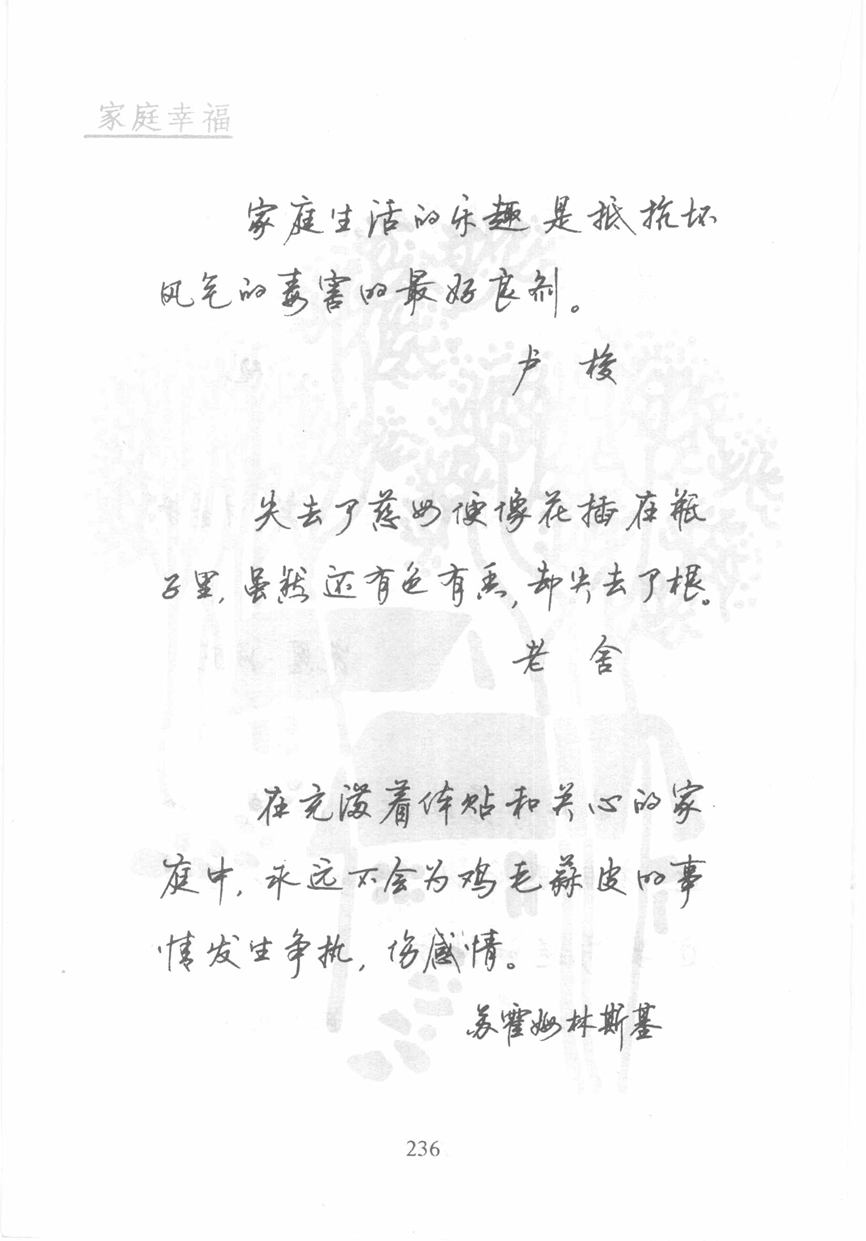 家庭幸福
家庭生活的乐趣是抵抗坏
风气的毒害的最好良剂。
卢梭
失去了慈母便像花插在瓶
子里,虽然还有色有香,却失去了根。
老舍
在充满着体贴和关心的家
庭中,永远不会为鸡毛蒜皮的事
情发生争执,伤感情。
苏霍姆林斯基
236